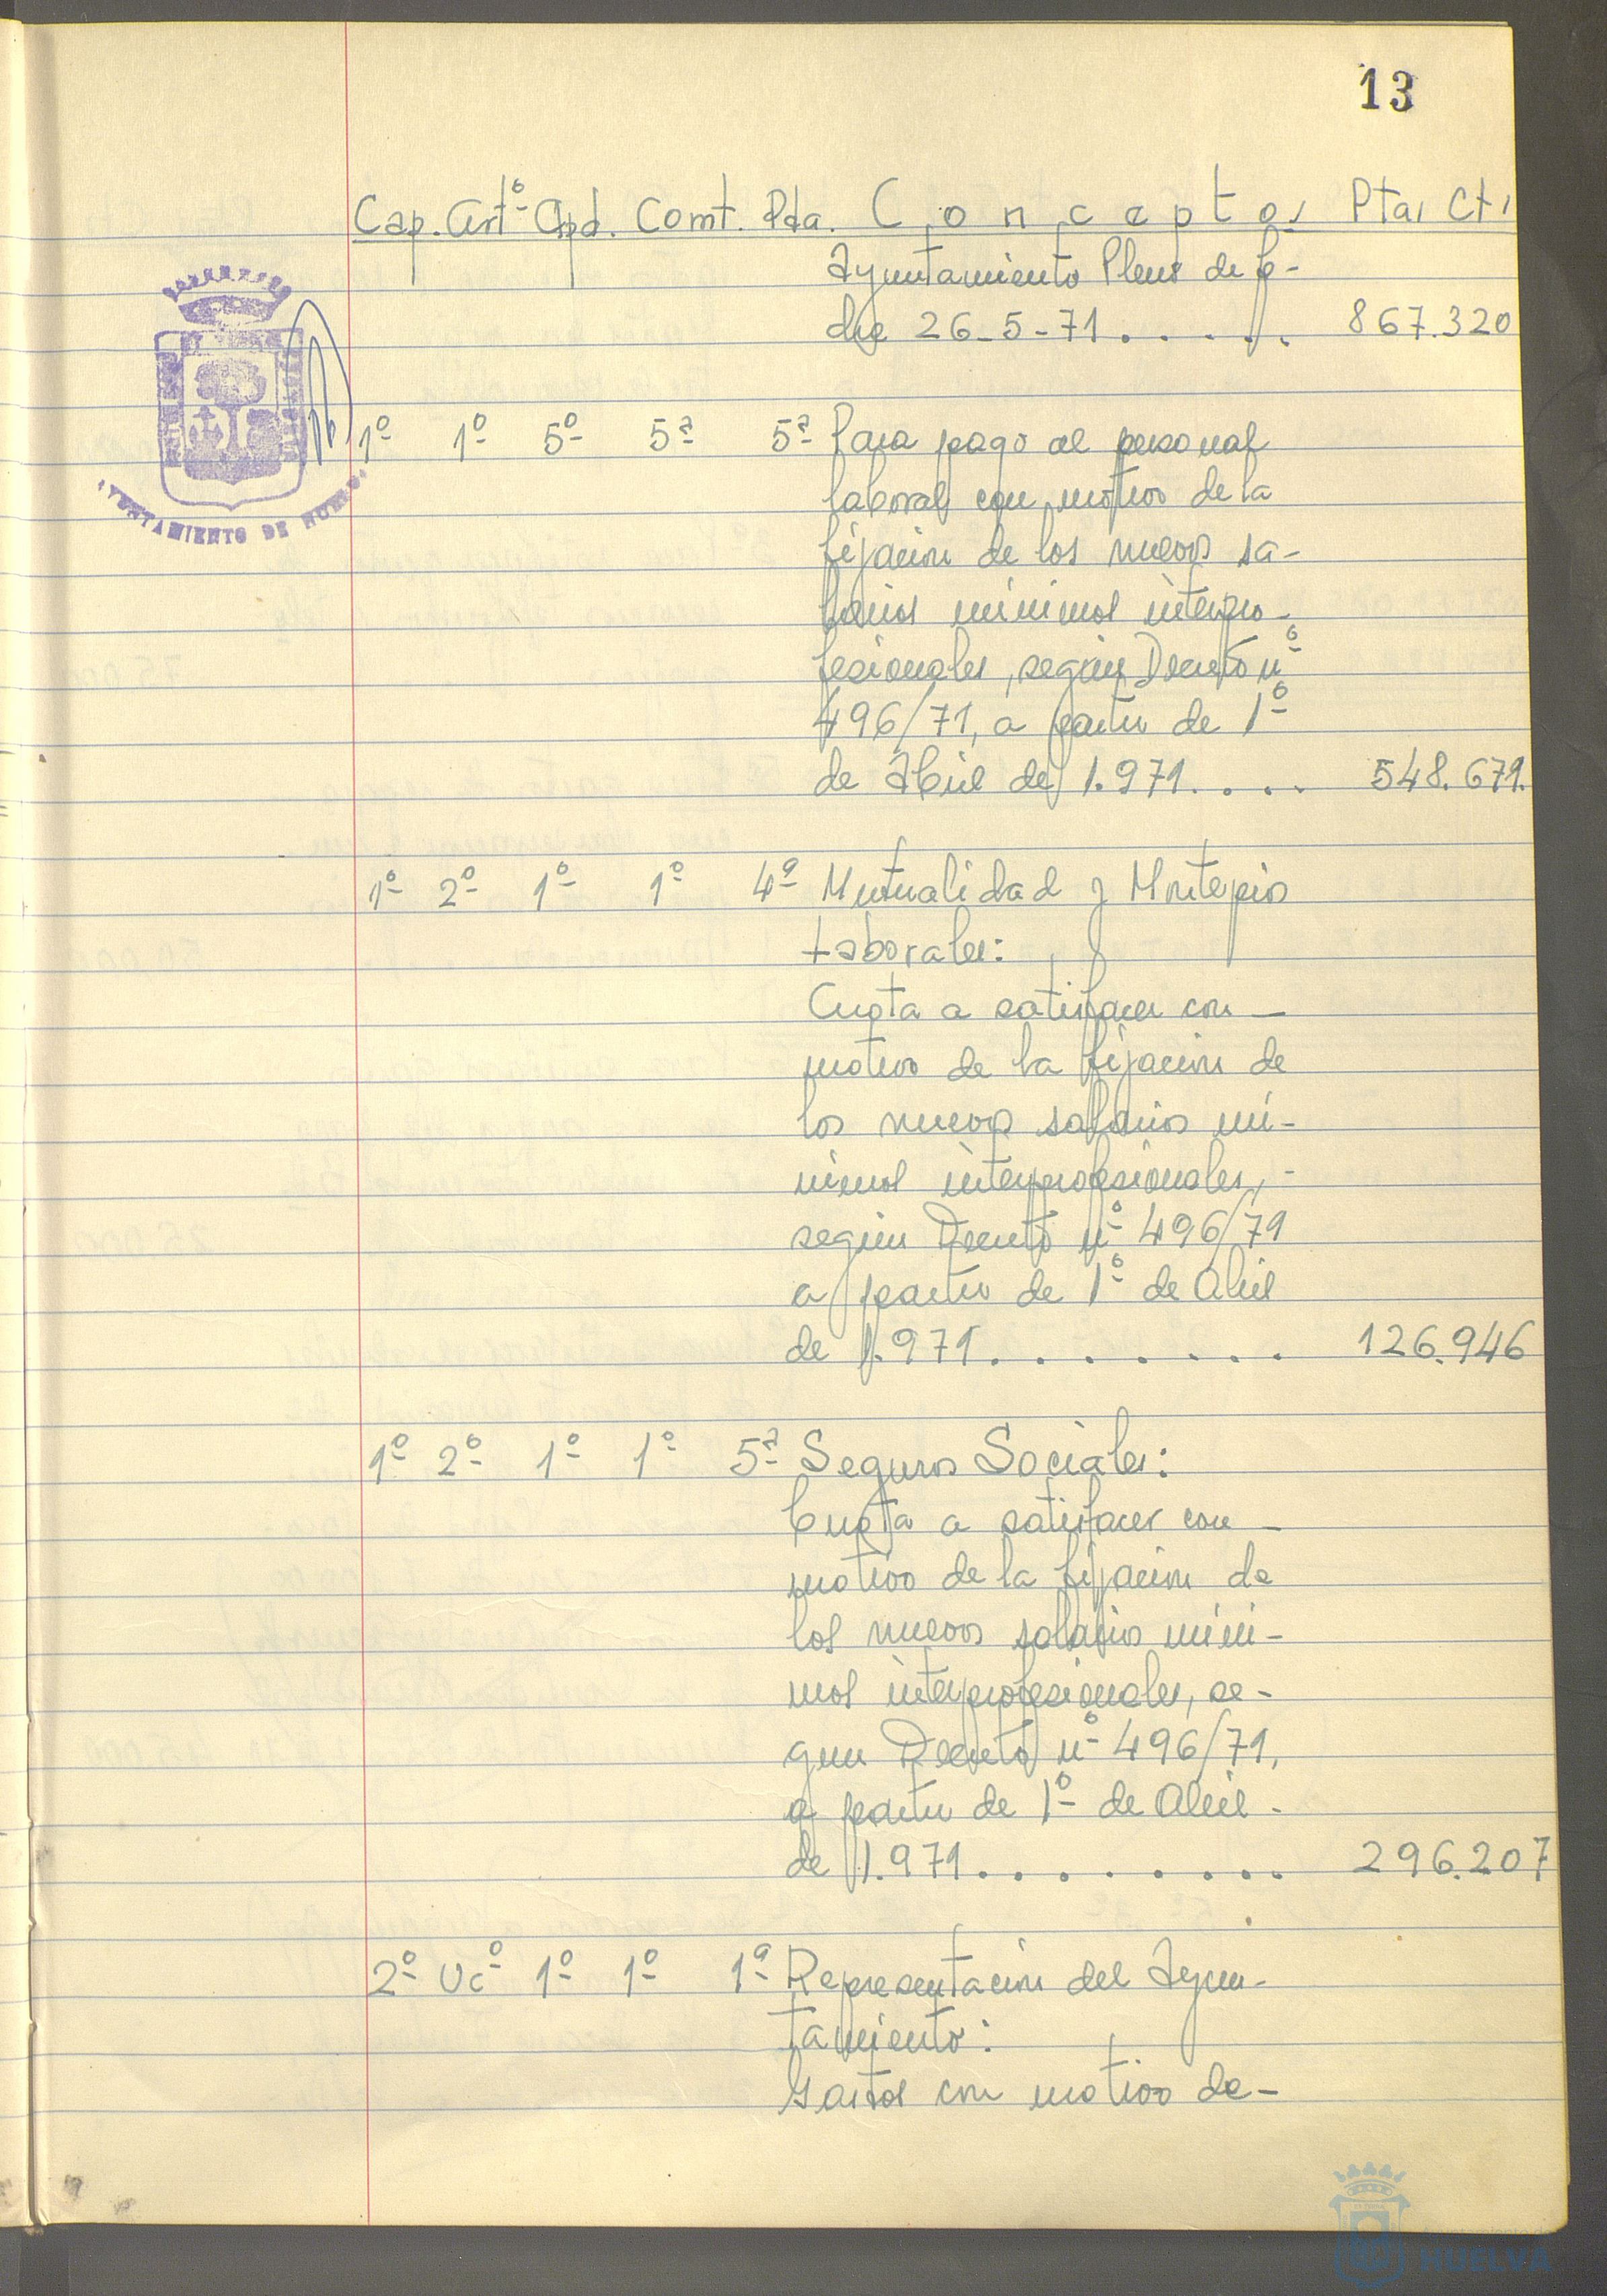 13
Cap. Artº Apd. Comt. Pda. Conceptos Ptas Cts
Ayuntamiento Pleno de fe-
cha 26-5-71...... 867.320
1º 1º 5º 5ª 5ª Para pago al personal
laboral con motivo de la
fijación de los nuevos sa-
larios mínimos interpro-
fesionales, según Decreto nº
496/71, a partir de 1º
de Abril de 1.971.... 548.671.
1º 2º 1º 1º 4ª Mutualidad y Montepío
Laborales:
Cuota a satisfacer con —
motivo de la fijación de
los nuevos salarios mí-
nimos interprofesionales, -
según Decreto nº 496/71
a partir de 1º de Abril
de 1.971........ 126.946
1º 2º 1º 1º 5ª Seguros Sociales:
Cuota a satisfacer con —
motivo de la fijación de
los nuevos salarios míni-
mos interprofesionales, se-
gún Decreto nº 496/71,
a partir de 1º de Abril -
de 1.971......... 296.207
2º Ucº 1º 1º 1ª Representación del Ayun-
tamiento:
Gastos con motivo de-
AYUNTAMIENTO DE HUELVA
HUELVA